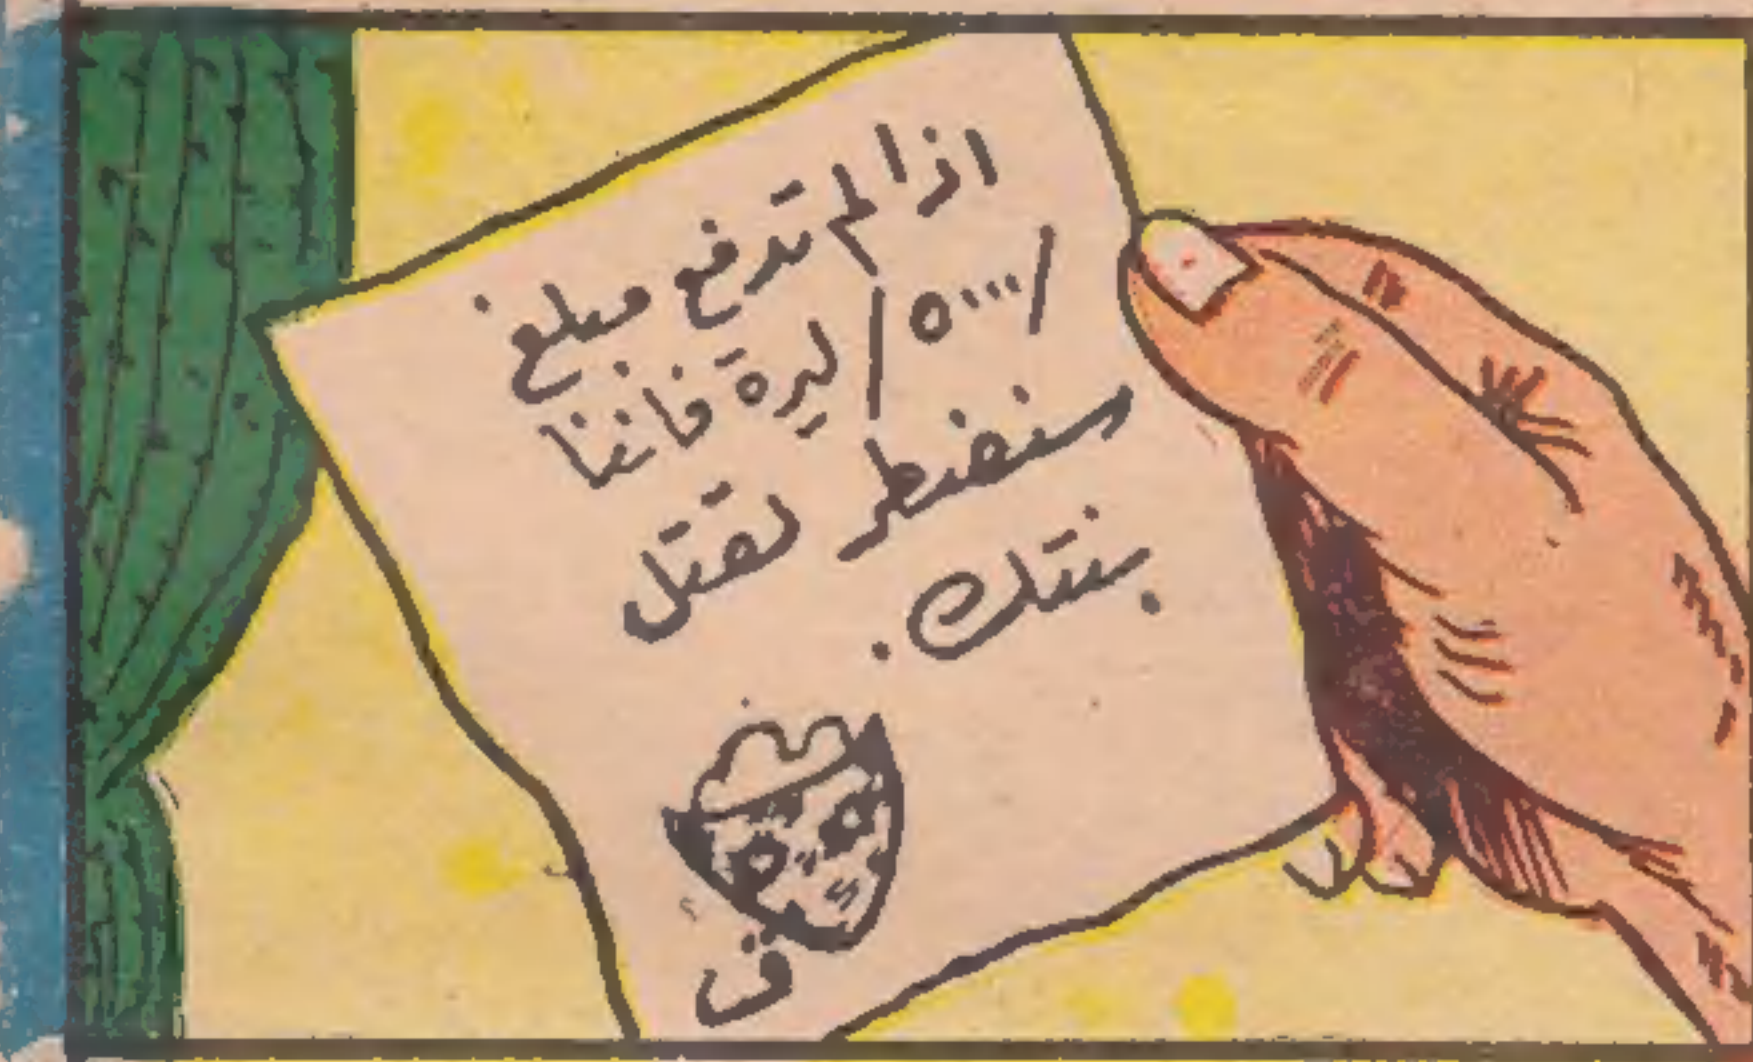 اذا لم تدفع مبلغ
/٥٠٠٠/ ليرة فاننا
سنضطر لقتل
بنتك.
ق